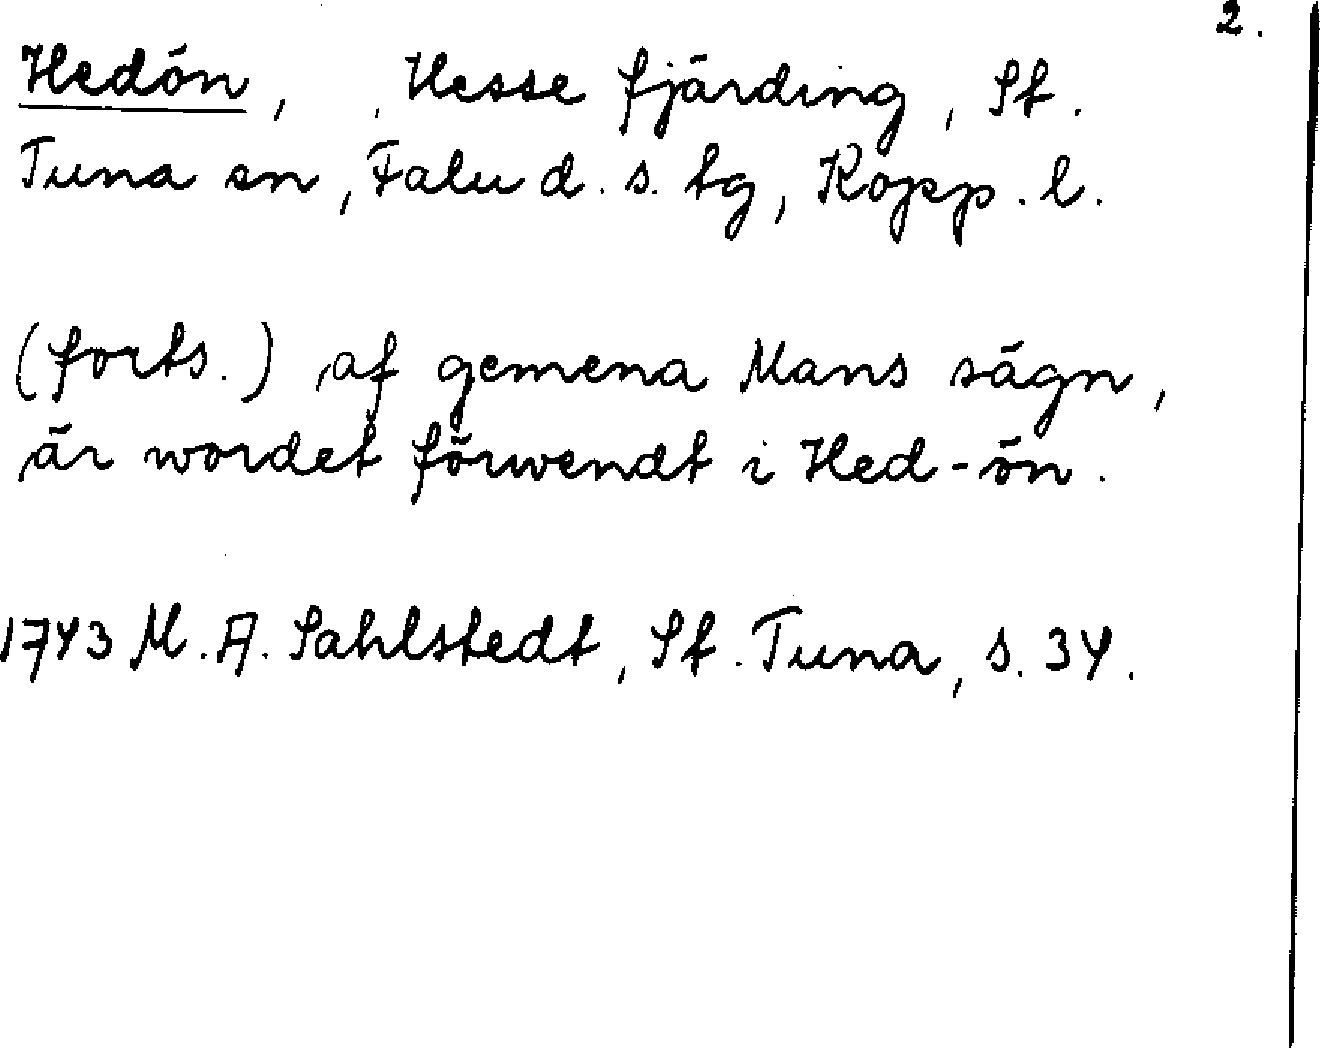 2.
Hedön, , Hesse fjärding, St.
Tuna sn, Falu d. s. tg, Kopp. l.
(forts.) af gemena Mans sägn,
är wordet förwendt i Hed-ön.
1743 M. A. Sahlstedt, St. Tuna, s. 34.